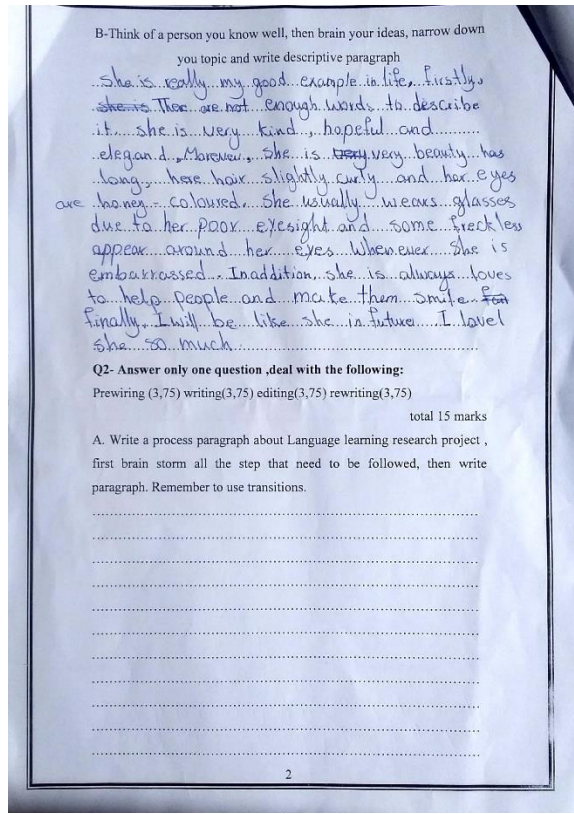 B-Think of a person you know well, then brain your ideas, narrow down
you topic and write descriptive paragraph
She is really my good example in life, firstly,
she is Ther are not enough words to describe
it. she is very kind, hopeful and
elegan.d, Moreveu, she is very very beauty has
long, here hair slightly curly and her eyes
are honey-coloured. She usually wears glasses
due to her poor eyesight and some freckless
appear around her eyes Whenever She is
embarrassed. In addition, she is always loves
to help people and make them smile
finally, I will be like she in future I lovel
she so much.
Q2- Answer only one question ,deal with the following:
Prewiring (3,75) writing(3,75) editing(3,75) rewriting(3,75)
total 15 marks
A. Write a process paragraph about Language learning research project ,
first brain storm all the step that need to be followed, then write
paragraph. Remember to use transitions.
2